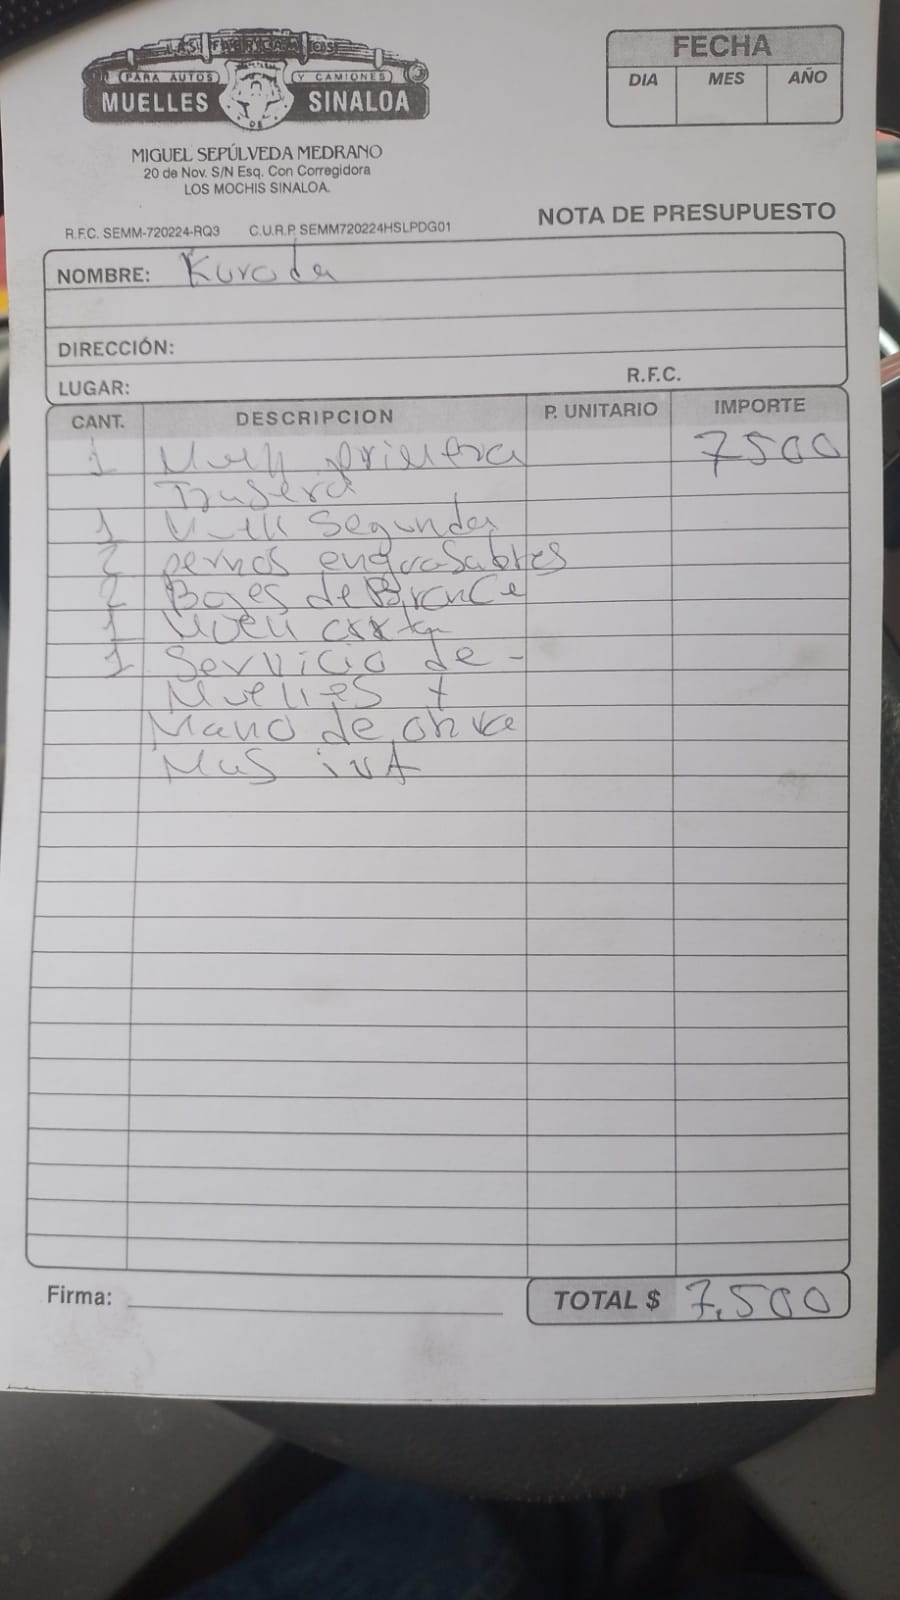 LAS FABRICAMOS
PARA AUTOS Y CAMIONES
MUELLES DE SINALOA
MIGUEL SEPÚLVEDA MEDRANO
20 de Nov. S/N Esq. Con Corregidora
LOS MOCHIS SINALOA.
R.F.C. SEMM-720224-RQ3 C.U.R.P. SEMM720224HSLPDG01
FECHA
DIA MES AÑO
NOTA DE PRESUPUESTO
NOMBRE: Kuroda
DIRECCIÓN:
LUGAR: R.F.C.
CANT. DESCRIPCION P. UNITARIO IMPORTE
1 primera 7500
Trasera
1 Segunda
2 pernos engrasables
2 Bojes de Bronce
1
1 Servicio de -
Muelles +
Mano de obra
Mas iVA
Firma: TOTAL $ 7,500